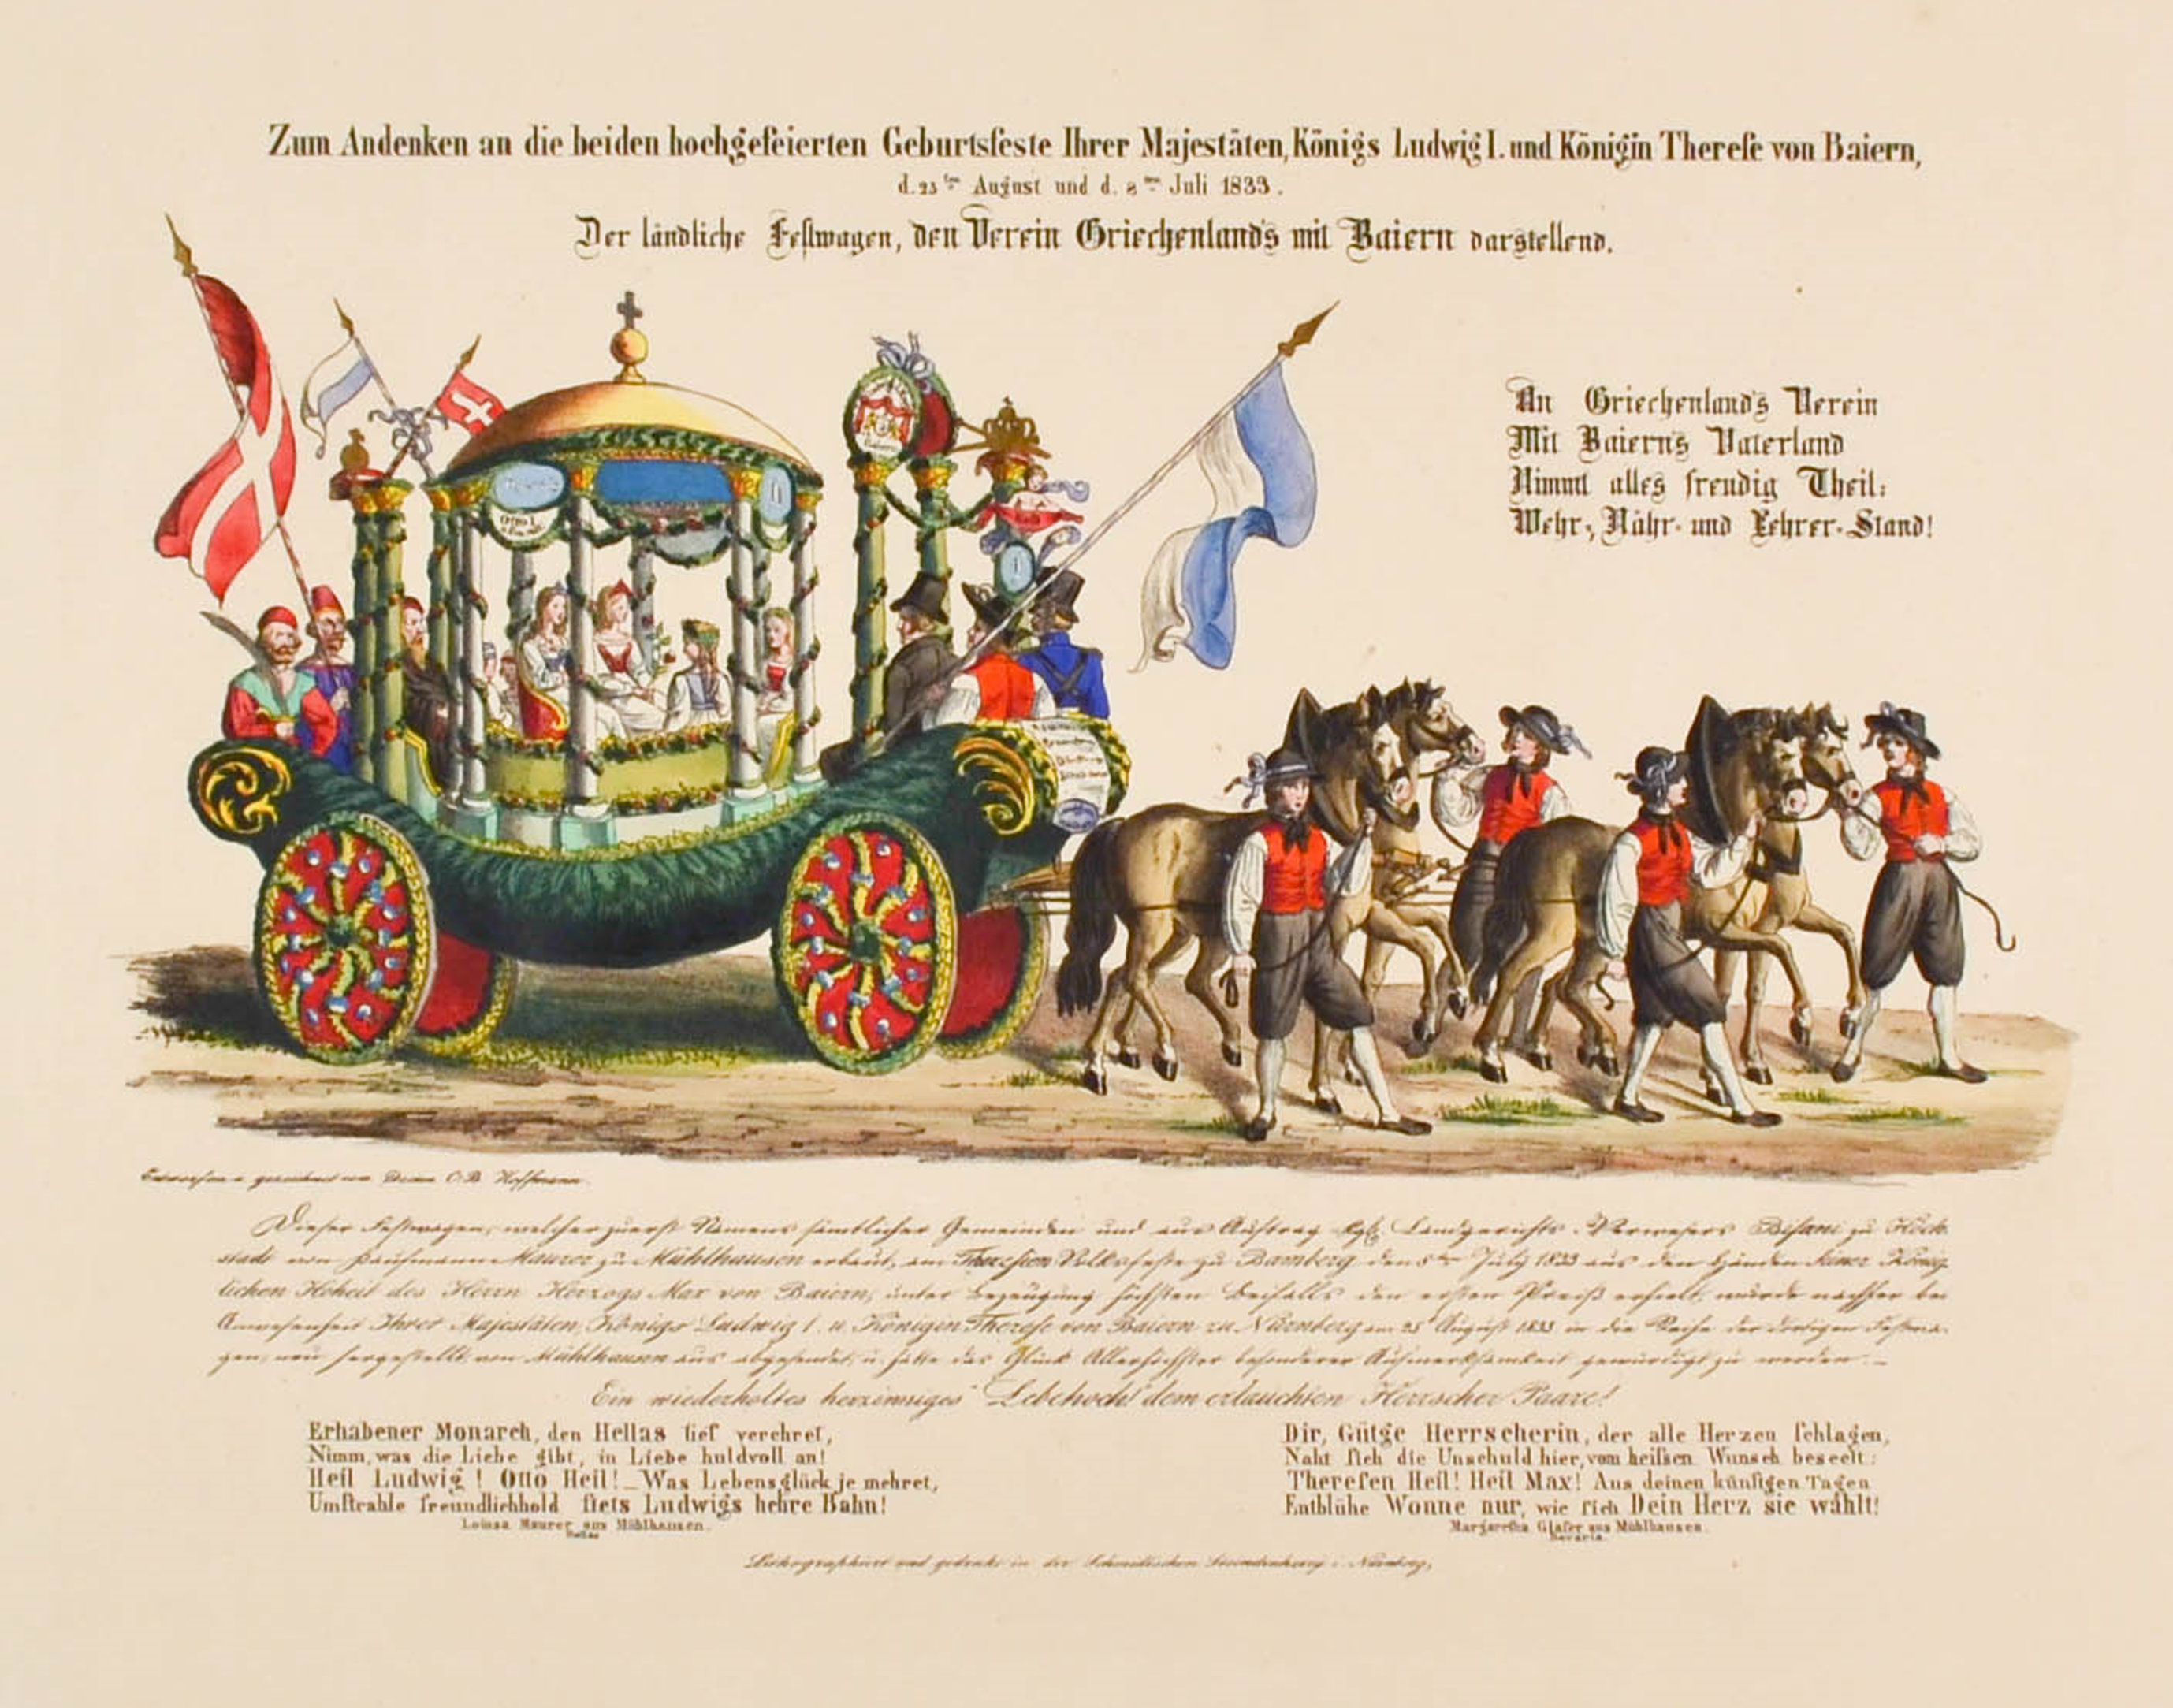 Zum Andenken an die beiden hochgefeierten Geburtsfeste Ihrer Majestäten, Königs Ludwig I. und Königin Therese von Baiern,
d. 25ten August und d. 8ten Juli 1833.
Der ländliche Festwagen, den Verein Griechenland's mit Baiern darstellend.
An Griechenland's Verein
Mit Baiern's Vaterland
Nimmt alles freudig Theil:
Wehr-, Nähr- und Lehrer-Stand!
Otto I.
Entworfen u. gezeichnet von C. B. Hoffmann.
Dieser Festwagen, welcher zuerst Namens sämtlicher Gemeinden und aus Auftrag kgl. Landgerichts-Verwesers Bisani zu Höch-
stadt von Kaufmann Maurer zu Mühlhausen erbaut, am Theresien Volksfeste zu Bamberg den July 1833 aus den Händen Seiner König-
lichen Hoheit des Herrn Herzogs Max von Baiern, unter Bezeugung höchsten Beifalls den ersten Preiß erhielt, wurde nachher bei
Anwesenheit Ihrer Majestäten, Königs Ludwig I. u. Königin Therese von Baiern zu Nürnberg am 25t August 1833 in die Reihe der dortigen Festwa-
gen, neu hergestellt, von Mühlhausen aus abgesendet, u. hatte das Glück Allerhöchster besonderer Aufmerksamkeit gewürdigt zu werden. —
Ein wiederholtes herzinniges Lebehoch! dem erlauchten Herrscher Paare!
Erhabener Monarch, den Hellas tief verehret,
Nimm, was die Liebe gibt, in Liebe huldvoll an!
Heil Ludwig! Otto Heil! — Was Lebensglück je mehret,
Umstrahle freundlichhold stets Ludwigs hehre Bahn!
Louisa Maurer aus Mühlhausen.
Hellas
Dir, Gütge Herrscherin, der alle Herzen schlagen,
Naht sich die Unschuld hier, vom heißen Wunsch beseelt:
Theresen Heil! Heil Max! Aus deinen künftigen Tagen
Entblühe Wonne nur, wie sich Dein Herz sie wählt!
Margaretha Glaser aus Mühlhausen.
Bavaria.
Lithographirt und gedruckt in der i. Nürnberg.